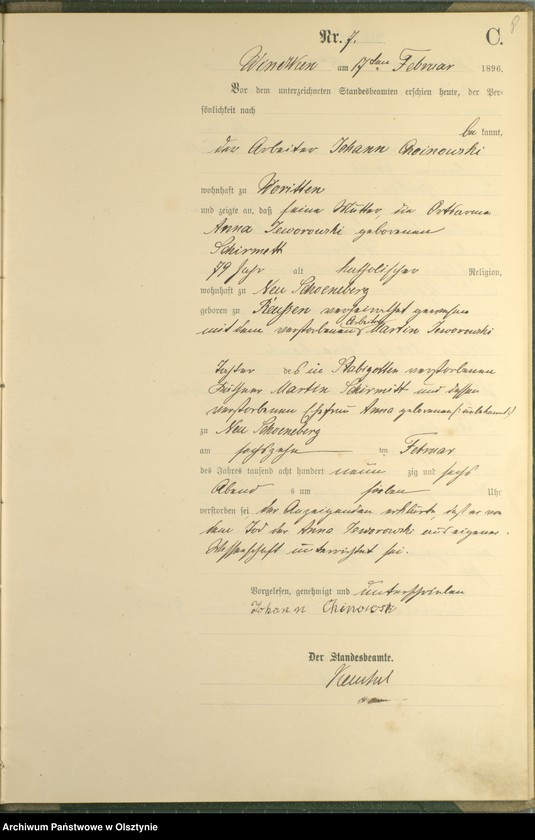 8
Nr. 7. C.
Windtken am 17ten Februar 1896.
Vor dem unterzeichneten Standesbeamten erschien heute, der Per-
sönlichkeit nach
be kannt,
der Arbeiter Johann Choinowski
wohnhaft zu Woritten
und zeigte an, daß seine Mutter, die Ortsarme
Anna Jeworowski geborenen
Schirmett
79 Jahr alt katholischer Religion,
wohnhaft zu Neu Schoeneberg
geboren zu Reußen verheirathet gewesen
mit dem verstorbenen Arbeiter Martin Jeworowski
Tochter des in Stabigotten verstorbenen
Martin Schirmett und dessen
verstorbenen Ehefrau Anna geborenen (: unbekannt :)
zu Neu Schoeneberg
am sechszehn ten Februar
des Jahres tausend acht hundert neun zig und sechs
Abend s um sieben Uhr
verstorben sei der Anzeigenden erklärte, daß er von
dem Tod der Anna Jeworowski aus eigener
Wissenschaft unterrichtet sei.
Vorgelesen, genehmigt und unterschrieben
Johann
Der Standesbeamte.
Archiwum Państwowe w Olsztynie